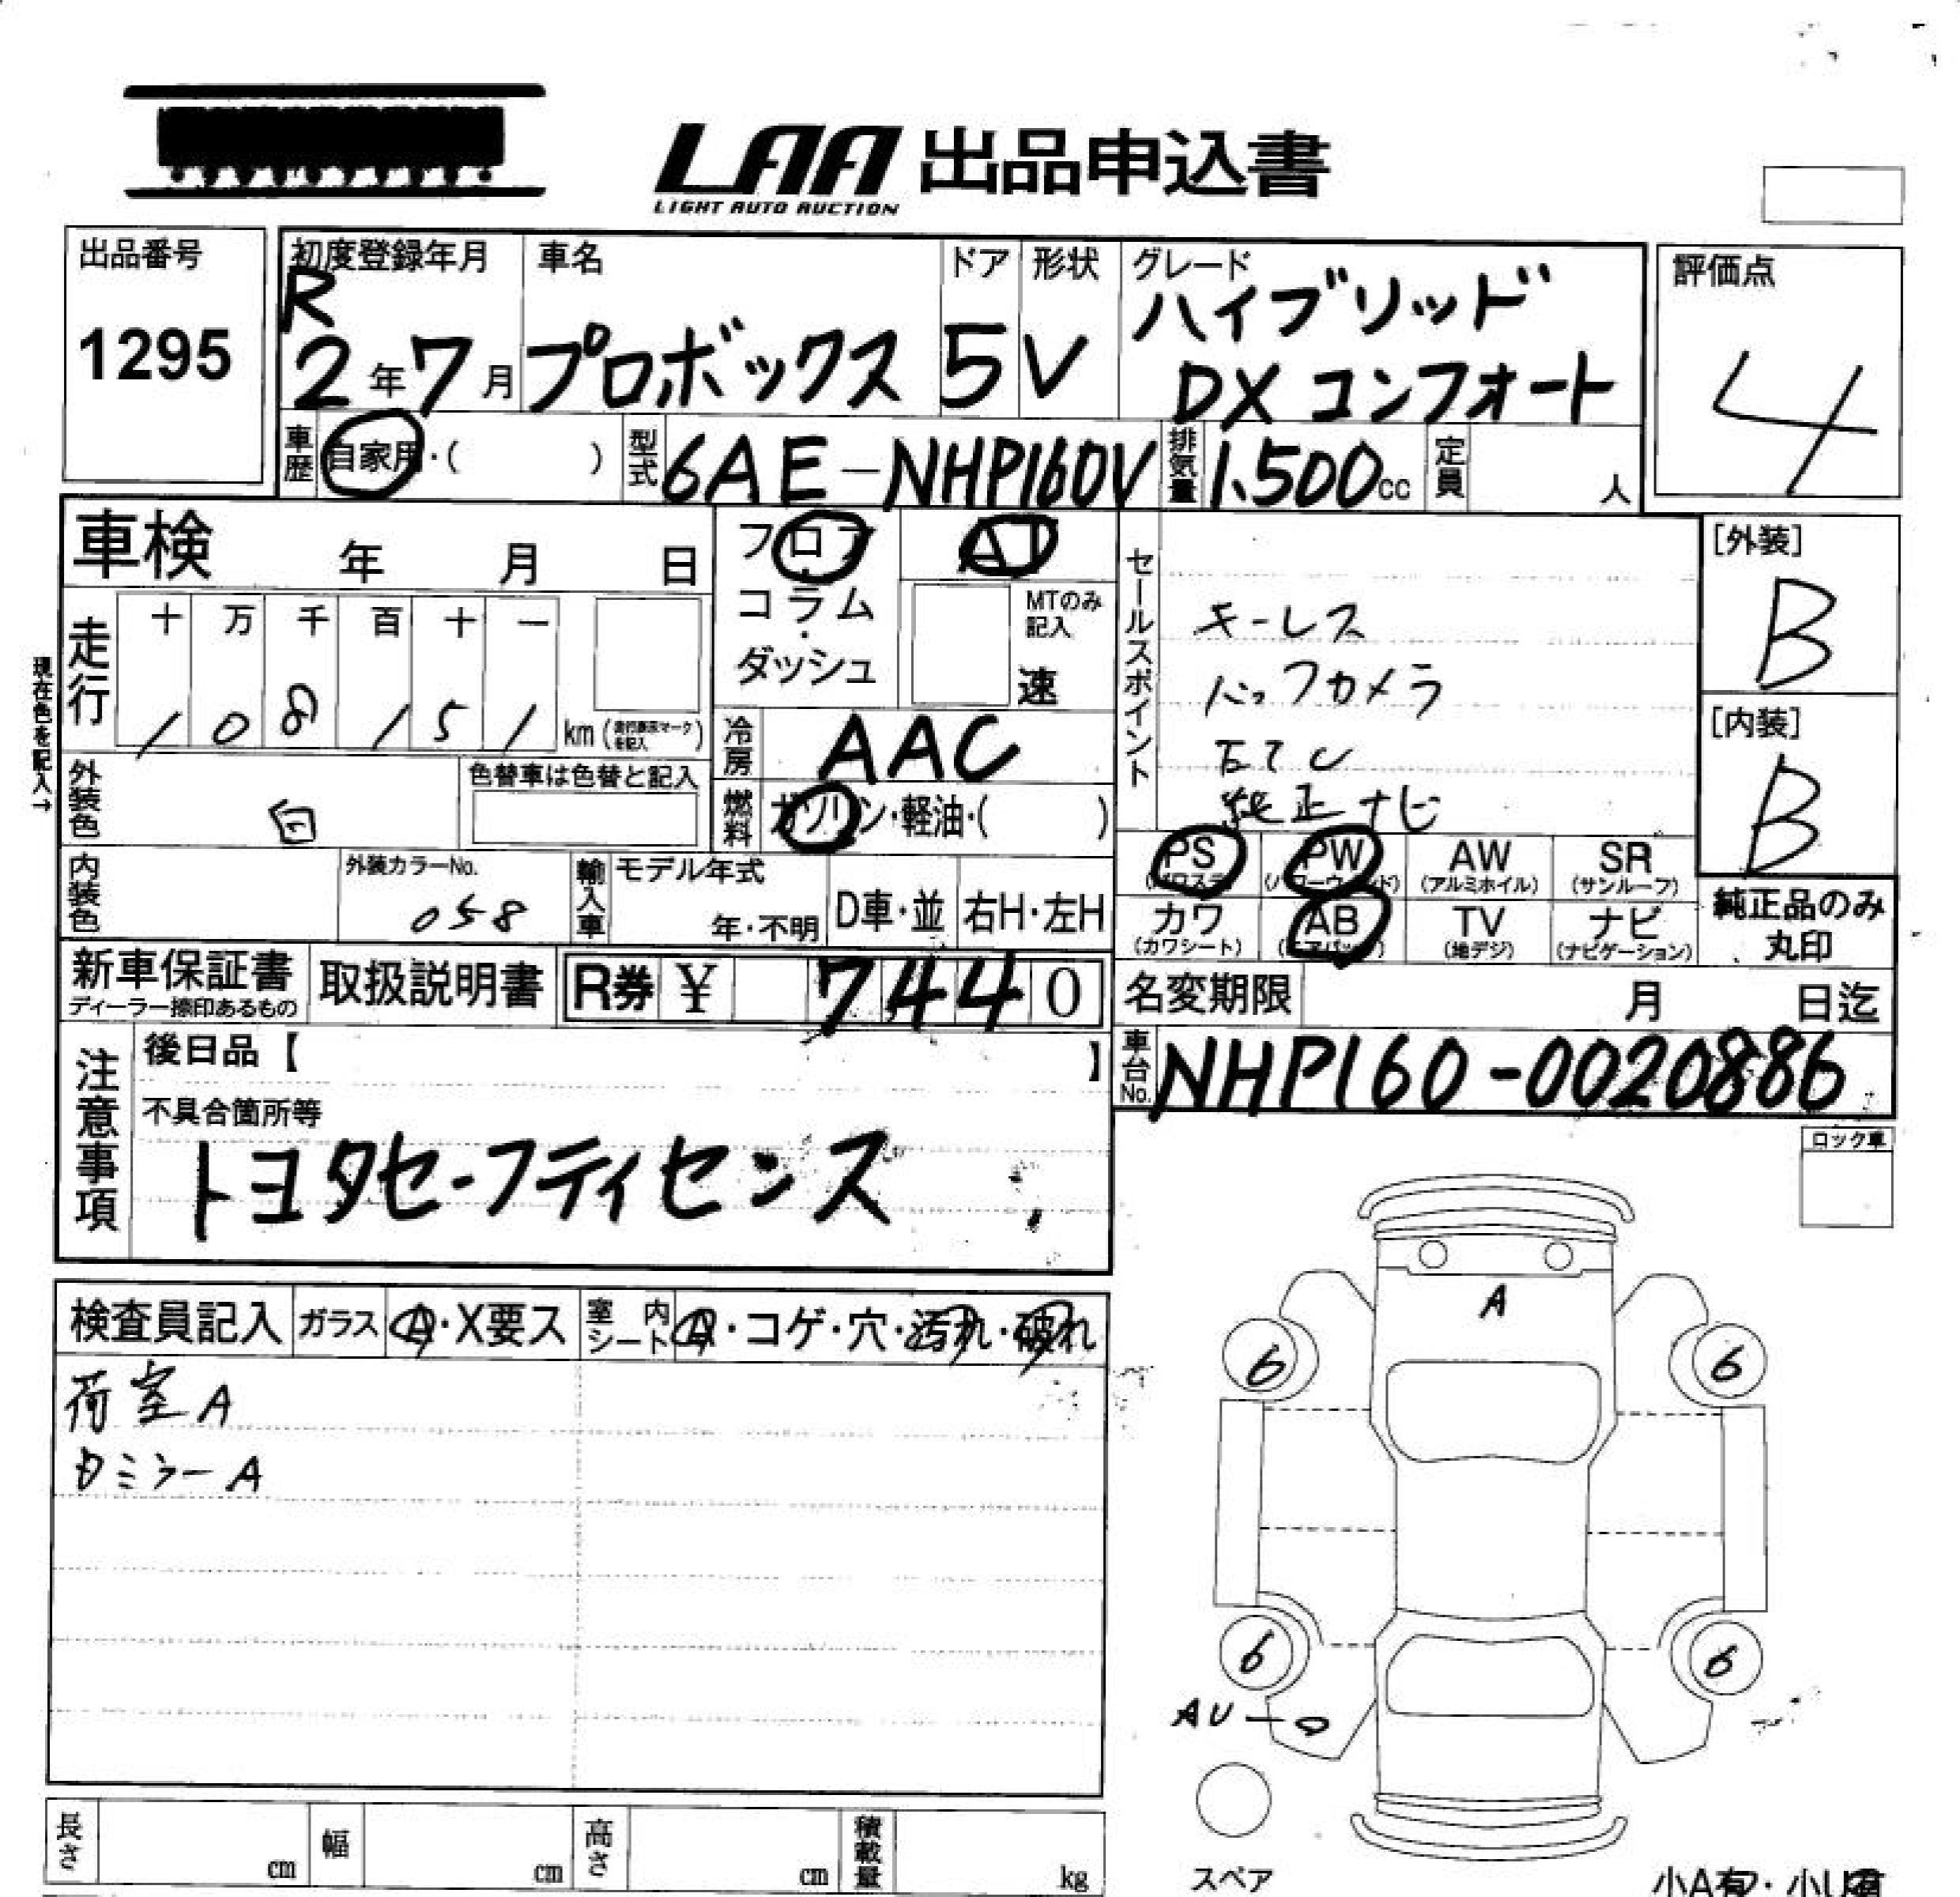 LAA 出品申込書
LIGHT AUTO AUCTION
出品番号
1295
初度登録年月
R
2年7月
車名
プロボックス
ドア
5
形状
V
グレード
ハイブリッド
DXコンフォート
評価点
4
車歴
自家用・( )
型式
6AE-NHP160V
排気量
1.500cc
定員
人
車検 年 月 日
フロア
・
コラム
・
ダッシュ
AT
MTのみ
記入
速
セールスポイント
キーレス
バックカメラ
ETC
純正ナビ
[外装]
B
[内装]
B
現在色を記入→
走行
十 万 千 百 十 一
1 0 8 1 5 1 km
冷房
AAC
外装色
白
色替車は色替と記入
燃料
ガソリン・軽油・( )
PS (パワステ)
PW (パワーウィンド)
AW (アルミホイル)
SR (サンルーフ)
カワ (カワシート)
AB (エアバッグ)
TV (地デジ)
ナビ (ナビゲーション)
純正品のみ
丸印
内装色
外装カラーNo.
058
輸入車
モデル年式
年・不明
D車・並
右H・左H
新車保証書
ディーラー捺印あるもの
取扱説明書
R券 ¥ 7440
名変期限 月 日迄
車台No.
NHP160-0020886
注意事項
後日品【 】
不具合箇所等
トヨタセーフティセンス
ロック車
検査員記入
ガラス
A・X要ス
室内シート
A・コゲ・穴・汚れ・破れ
荷室A
ミラーA
A
6
6
6
6
AU
スペア
長さ cm
幅 cm
高さ cm
積載量 kg
小A有・小U有